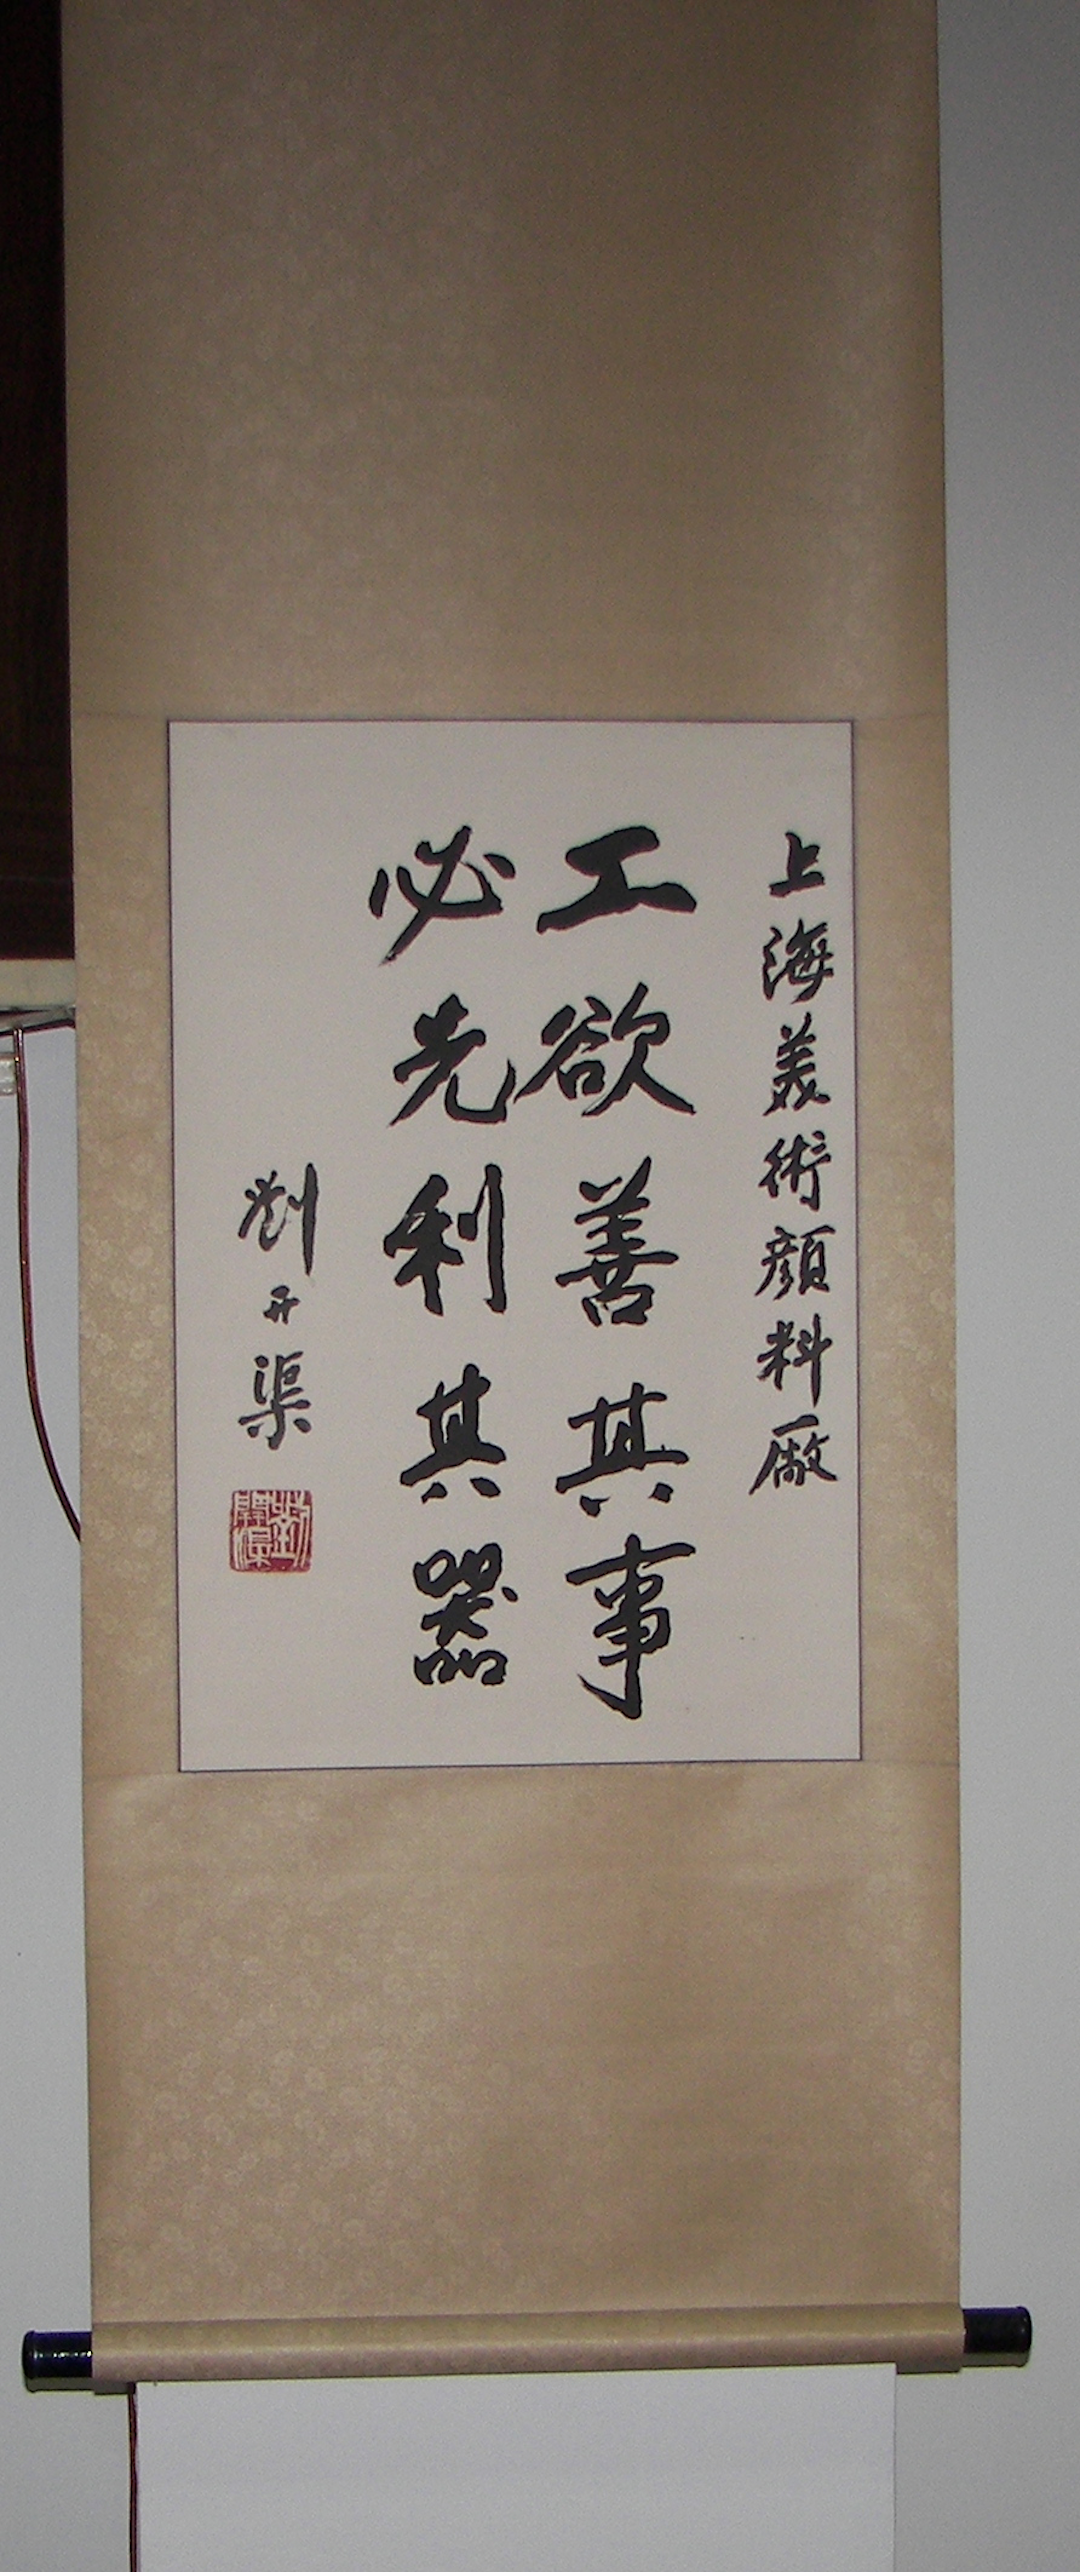 上海美術顔料廠
工欲善其事
必先利其器
劉开渠
劉開渠